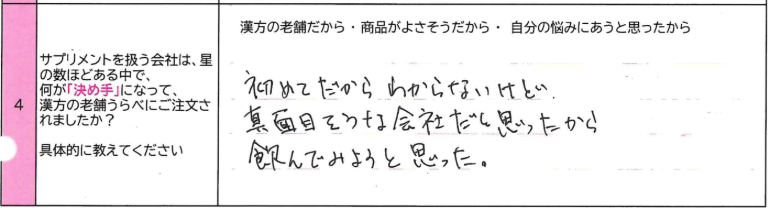 漢方の老舗だから・商品がよさそうだから・ 自分の悩みにあうと思ったから
4
サプリメントを扱う会社は、星
の数ほどある中で、
何が「決め手」になって、
漢方の老舗うらべにご注文さ
れましたか？
具体的に教えてください
初めてだから わからないけど
真面目そうな会社だと思ったから
飲んでみようと思った。